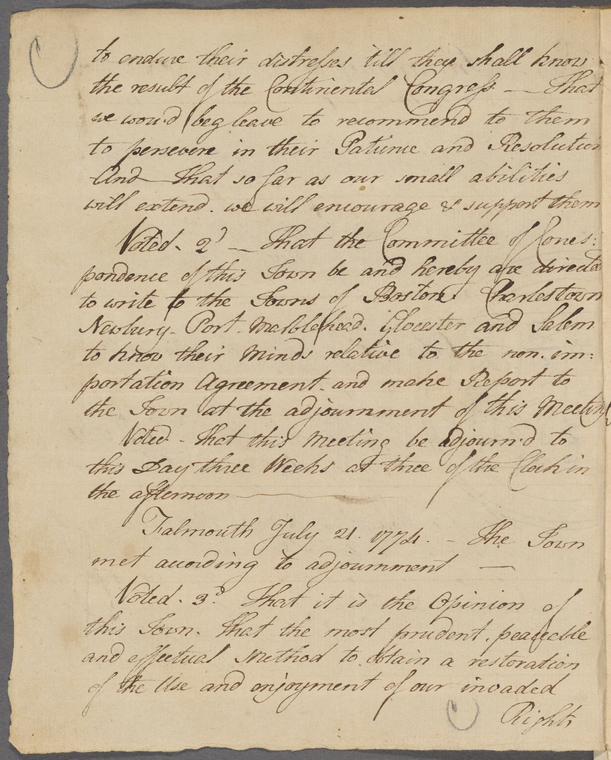 to endure their distresses till they shall know
the result of the Continental Congress — That
we wou'd beg leave to recommend to them
to persevere in their Patience and Resolution
And That so far as our small abilities
will extend. we will encourage & support them
Voted. 2d — That the Committee of Corres:
pondence of this Town be and hereby are directed
to write to the Towns of Boston. Charlestown
Newbury-Port. Marblehead. Glocester and Salem
to know their Minds relative to the non. im=
portation Agreement. and make Report to
the Town at the adjournment of this Meeting
Voted - That this Meeting be adjourn'd to
this Day three Weeks at three of the Clock in
the afternoon
Falmouth July 21. 1774. - The Town
met acording to adjournment —
Voted. 3d. That it is the Opinion of
this Town. That the most prudent. peaceable
and effectual Method to obtain a restoration
of the Use and enjoyment of our invaded
Rights